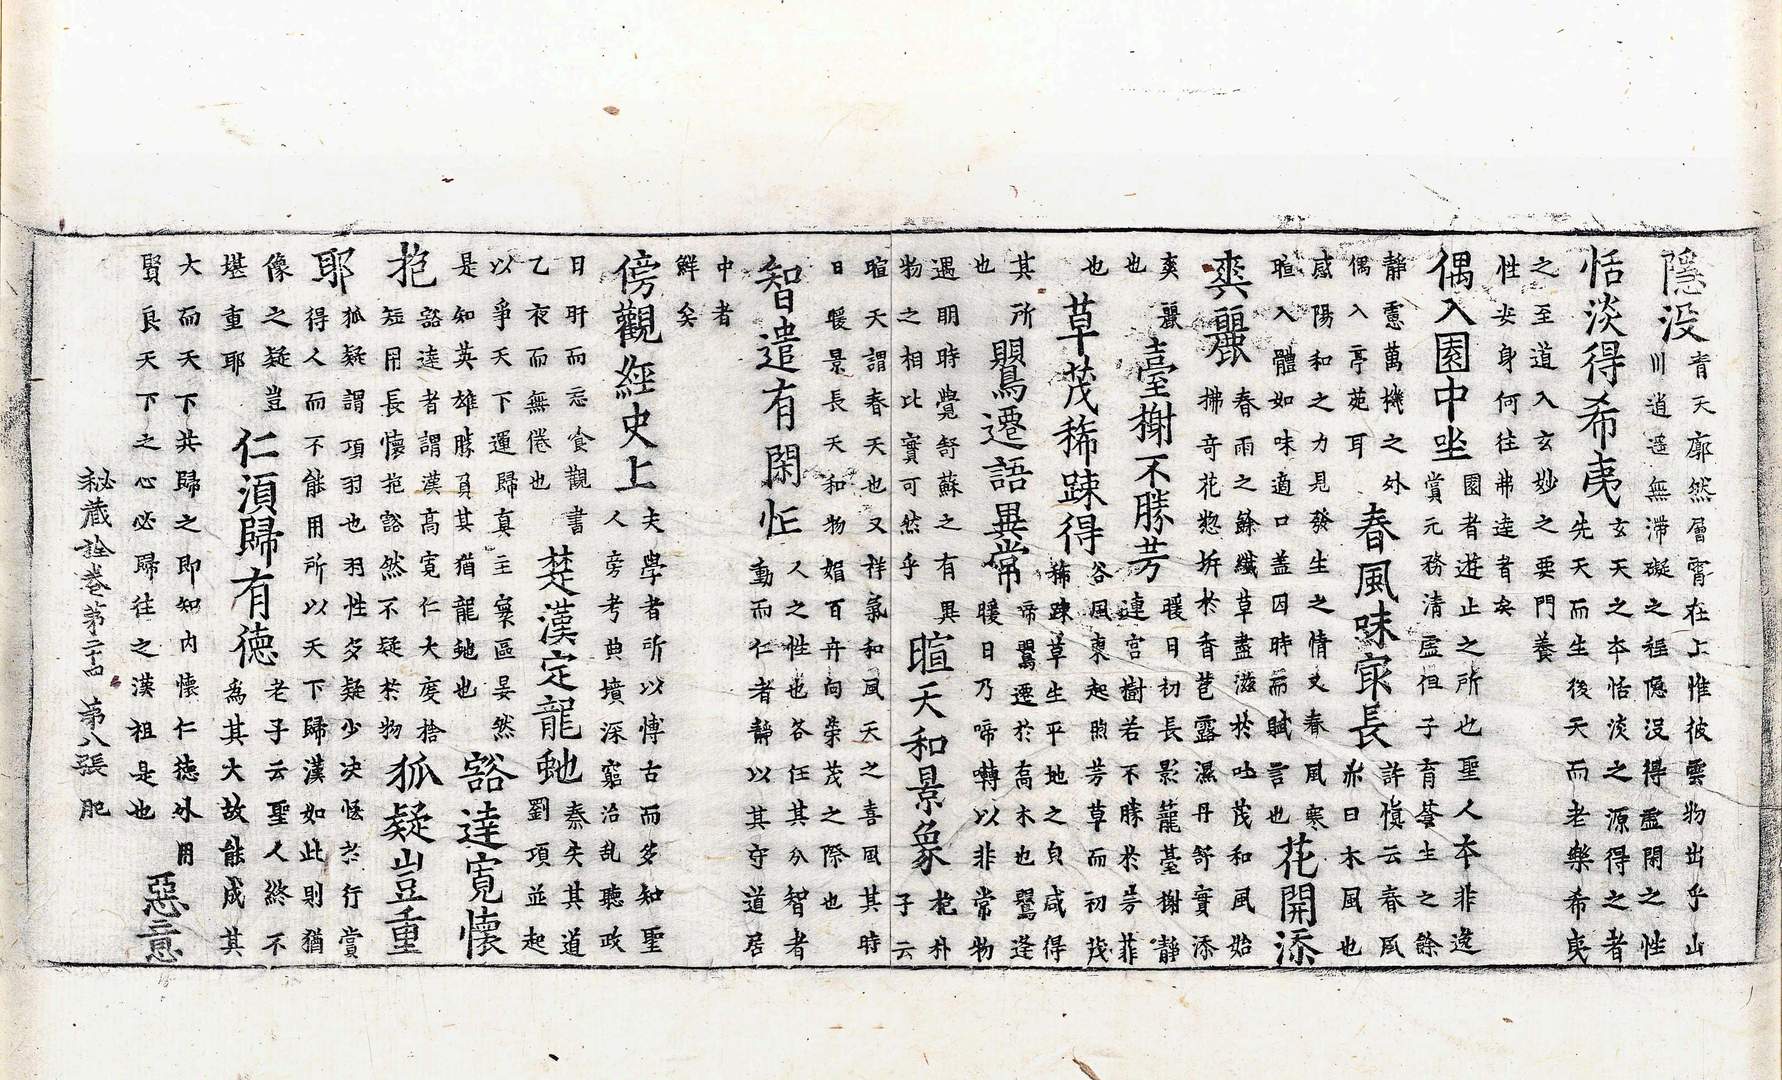 隱没
青天廓然層霄在上惟彼雲物出乎山
川逍遥無滯礙之程隱没得盡閑之性
恬淡得希夷
玄天之本恬淡之源得之者
先天而生後天而老樂希夷
之至道入玄妙之要門養
性安身何往弗達者矣
偶入園中坐
園者遊止之所也聖人本非逸
賞元務清虚但子育蒼生之餘
静慮萬機之外
偶入亭苑耳
春風味㝡長
許慎云春風
亦曰木風也
感陽和之力見發生之情丈春風寒
暄入體如味適口盖因時而賦言也
花開添
爽麗
春雨之餘纖草盡滋於吐茂和風始
拂奇花惣坼於香苞露濕丹舒實添
爽麗
也
臺榭不勝芳
暖日初長影籠臺榭静
連宮樹若不勝於芳菲
也
草茂稀踈得
谷風東起煦芳草而初茂
稀踈草生平地之自咸得
其所
也
鸎遷語異常
啼鸎遷於高木也鸎逢
暖日乃啼囀以非常物
遇明時覺舒蘇之有異
物之相比實可然乎
暄天和景象
抱朴
子云
暄天謂春天也又祥氣和風天之喜風其時
日暖景長天和物媚百卉向榮茂之際也
智遣有閑忙
人之性也各任其分智者
動而仁者静以其守道居
中者
鮮矣
傍觀經史上
夫學者所以博古而多知聖
人旁考典墳深窮治乱聽政
日旰而忘飡觀書
乙夜而無倦也
楚漢定龍虵
秦失其道
劉項並起
以爭天下運歸真主寰區晏然
是知英雄勝負其猶龍虵也
豁達寬懷
抱
豁達者謂漢高寬仁大度捨
短用長懷抱豁然不疑於物
狐疑豈重
耶
狐疑謂項羽也羽性多疑少决恡於行賞
得人而不能用所以天下歸漢如此則猶
像之疑豈
堪重耶
仁須歸有德
老子云聖人終不
爲其大故能成其
大而天下共歸之即知内懷仁德外用
賢良天下之心必歸往之漢祖是也
惡意
秘藏詮卷第二十四 第八張 肥